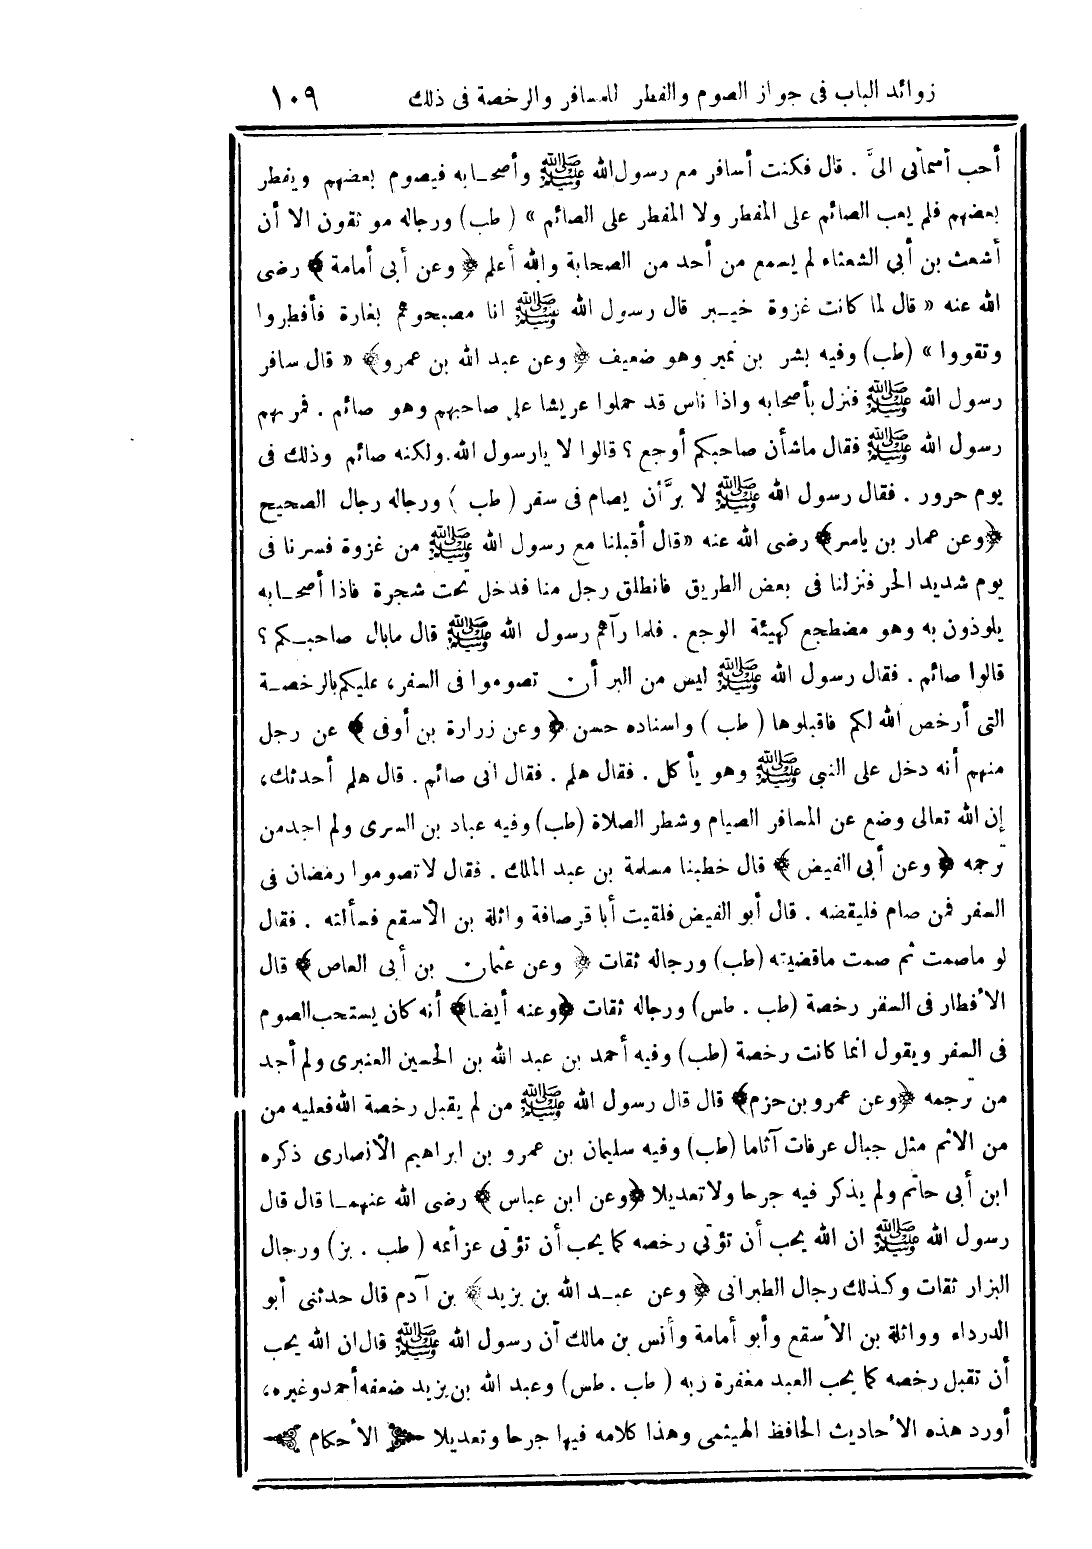 زوائد الباب فى جواز الصوم والفطر للمسافر والرخصة فى ذلك ١٠٩
أحب أسمآئى الىَّ . قال فكنت أسافر مع رسول الله ﷺ وأصحـابه فيصوم بعضهم ويفطر
بعضهم فلم يعب الصائم على المفطر ولا المفطر على الصائم » ( طب ) ورجاله موثقون الا أن
أشعث بن أبي الشعثاء لم يسمع من أحد من الصحابة والله أعلم ﴿ وعن أبى أمامة ﴾ رضى
الله عنه « قال لما كانت غزوة خيـبر قال رسول الله ﷺ انا مصبحوهم بغارة فأفطروا
وتقووا » (طب) وفيه بشر بن نمير وهو ضعيف ﴿ وعن عبد الله بن عمرو﴾ « قال سافر
رسول الله ﷺ فنزل بأصحابه واذا ناس قد حملوا عريشا على صاحبهم وهو صائم . فمر بهم
رسول الله ﷺ فقال ماشأن صاحبكم أوجع ؟ قالوا لا يارسول الله.ولكنه صائم وذلك فى
يوم حرور . فقال رسول الله ﷺ لا برَّ أن يصام فى سفر ( طب ) ورجاله رجال الصحيح
﴿وعن عمار بن ياسر﴾ رضى الله عنه «قال أقبلنا مع رسول الله ﷺ من غزوة فسرنا فى
يوم شديد الحر فنزلنا فى بعض الطريق فانطلق رجل منا فدخل تحت شجرة فاذا أصحـابه
يلوذون به وهو مضطجع كهيئة الوجع . فلما رآهم رسول الله ﷺ قال مابال صاحبـكم ؟
قالوا صائم . فقال رسول الله ﷺ ليس من البر أن تصوموا فى السفر، عليكم بالرخصـة
التى أرخص الله لكم فاقبلوها ( طب ) واسناده حسن ﴿ وعن زرارة بن أوفى ﴾ عن رجل
منهم أنه دخل على النبي ﷺ وهو يأكل . فقال هلم . فقال انى صائم . قال هلم أحدثك،
إن الله تعالى وضع عن المسافر الصيام وشطر الصلاة (طب) وفيه عباد بن السرى ولم اجدمن
ترجمه ﴿ وعن أبى الفيض ﴾ قال خطبنا مسلمة بن عبد الملك . فقال لاتصوموا رمضان فى
السفر فمن صام فليقضه . قال أبو الفيض فلقيت أبا قرصافة واثلة بن الأسقع فسألته . فقال
لو ماصمت ثم صمت ماقضيته (طب) ورجاله ثقات ﴿ وعن عثمان بن أبى العاص ﴾ قال
الأفطار فى السفر رخصة (طب . طس) ورجاله ثقات ﴿وعنه أيضا﴾ أنه كان يستحب الصوم
فى السفر ويقول انما كانت رخصة (طب) وفيه أحمد بن عبد الله بن الحسين العنبرى ولم أجد
من ترجمه ﴿وعن عمرو بن حزم﴾ قال قال رسول الله ﷺ من لم يقبل رخصة الله فعليه من
من الاثم مثل جبال عرفات آثاما (طب) وفيه سليمان بن عمرو بن ابراهيم الأنصارى ذكره
ابن أبى حاتم ولم يذكر فيه جرحا ولا تعديلا ﴿وعن ابن عباس ﴾ رضى الله عنهمـا قال قال
رسول الله ﷺ ان الله يحب أن تؤتى رخصه كما يحب أن تؤتى عزآئمه ( طب . بز) ورجال
البزار ثقات وكـذلك رجال الطبرانى ﴿ وعن عبـد الله بن يزيد﴾ بن آدم قال حدثنى أبو
الدرداء وواثلة بن الأسقع وأبو أمامة وأنس بن مالك أن رسول الله ﷺ قال ان الله يحب
أن تقبل رخصه كما يحب العبد مغفرة ربه ( طب . طس) وعبد الله بن يزيد ضعفه أحمد وغيره،
أورد هذه الأحاديث الحافظ الهيثمى وهذا كلامه فيها جرحا وتعديلا الأحكام